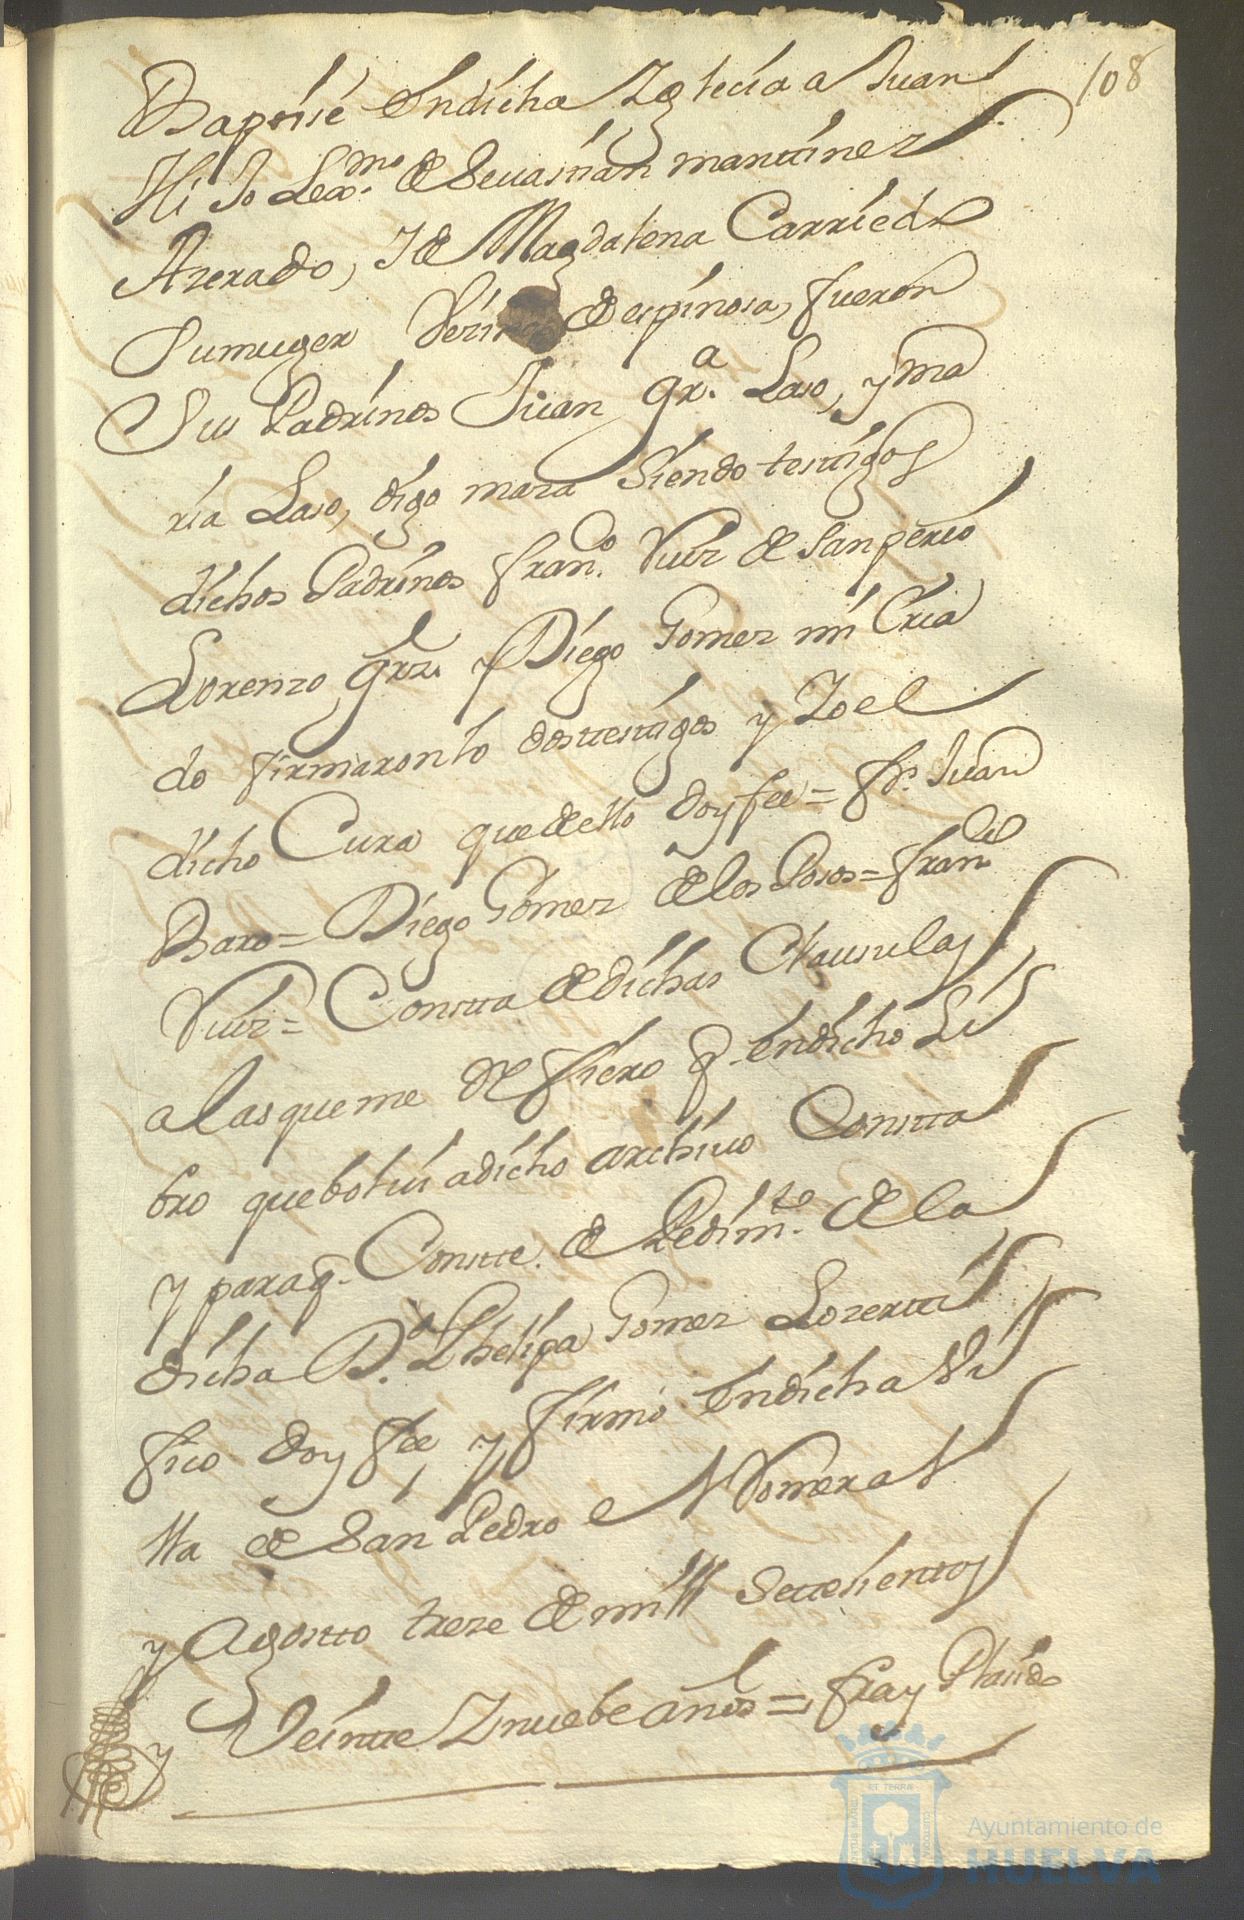 108
Baptise en dicha Yglecia a Juan
Hijo Lexmo. de Sevastian Marttinez
Azerado, y de Magdalena Carriedo
su muger Vezinos de espinosa, fueron
sus Padrinos Juan gra. Laso, y ma
ria Laso, digo maza siendo testtigos
dichos Padrinos Frano. Ruiz de
Lorenzo grz. y Diego Gomez mi Cria
do firmaronlo dos ttesttigos y Yo el
dicho Cura que de ello doy fee = Fr. Juan
Baro = Diego Gomez de los Posos = Fran
Ruiz = Constta de dichas Clausulas
a las que me Refiero q. en dicho Li
bro que bolvi a dicho archivo Constta
y para q. Constte. de Pedimto. de la
dicha Da. Phelipa Gomez Lo zertti
fico doy fee, y firmo en dicha Vi
lla de San Pedro el Romeral
y Agostto treze de mill Settesienttos
y Veintte Y nuebe años = fray Plasido
Ayuntamiento de
HUELVA